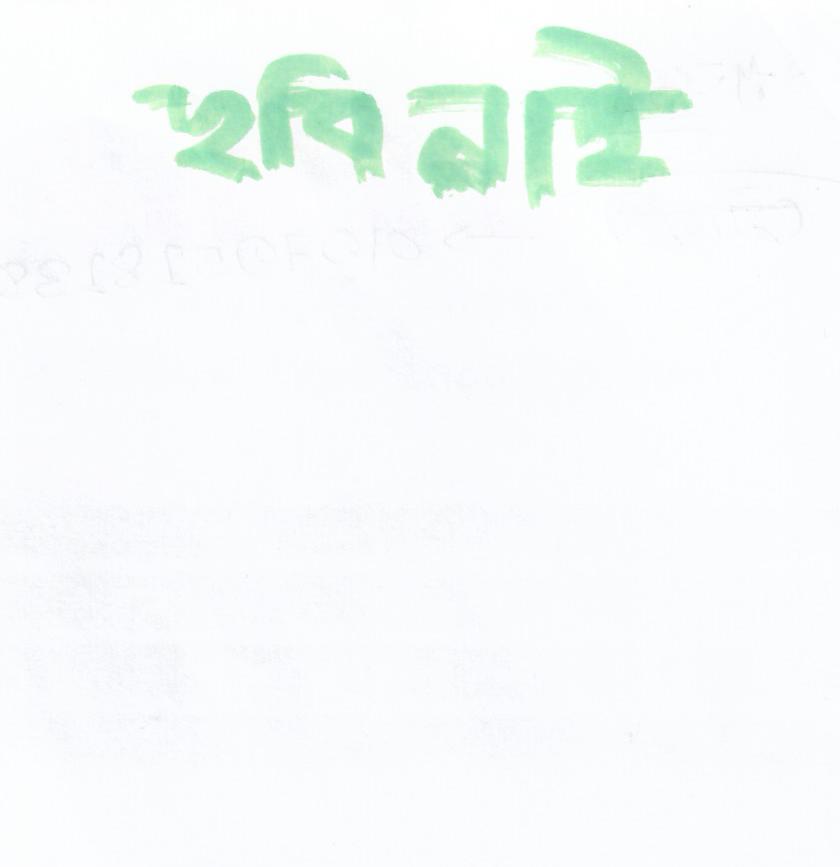 ছবি নাই